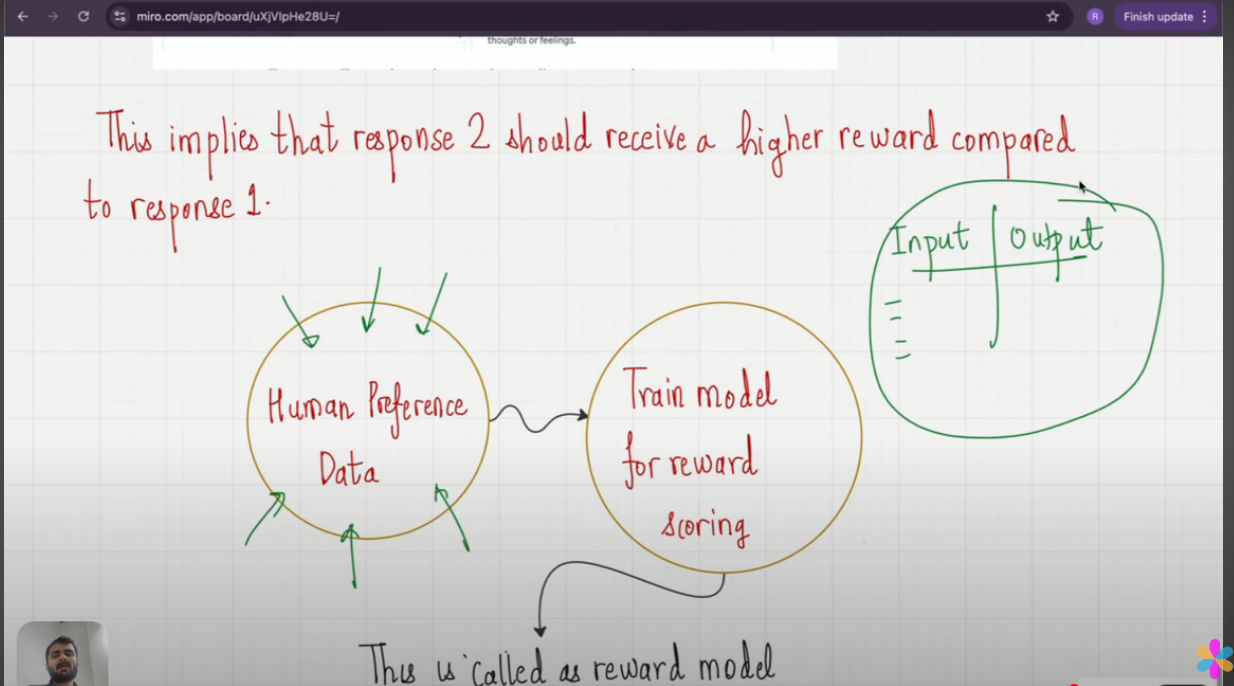 miro.com/app/board/uXjVIpHe28U=/
R
Finish update
thoughts or feelings.
This implies that response 2 should receive a higher reward compared
to response 1.
Input Output
Human Preference
Data
Train model
for reward
scoring
This is called as reward model